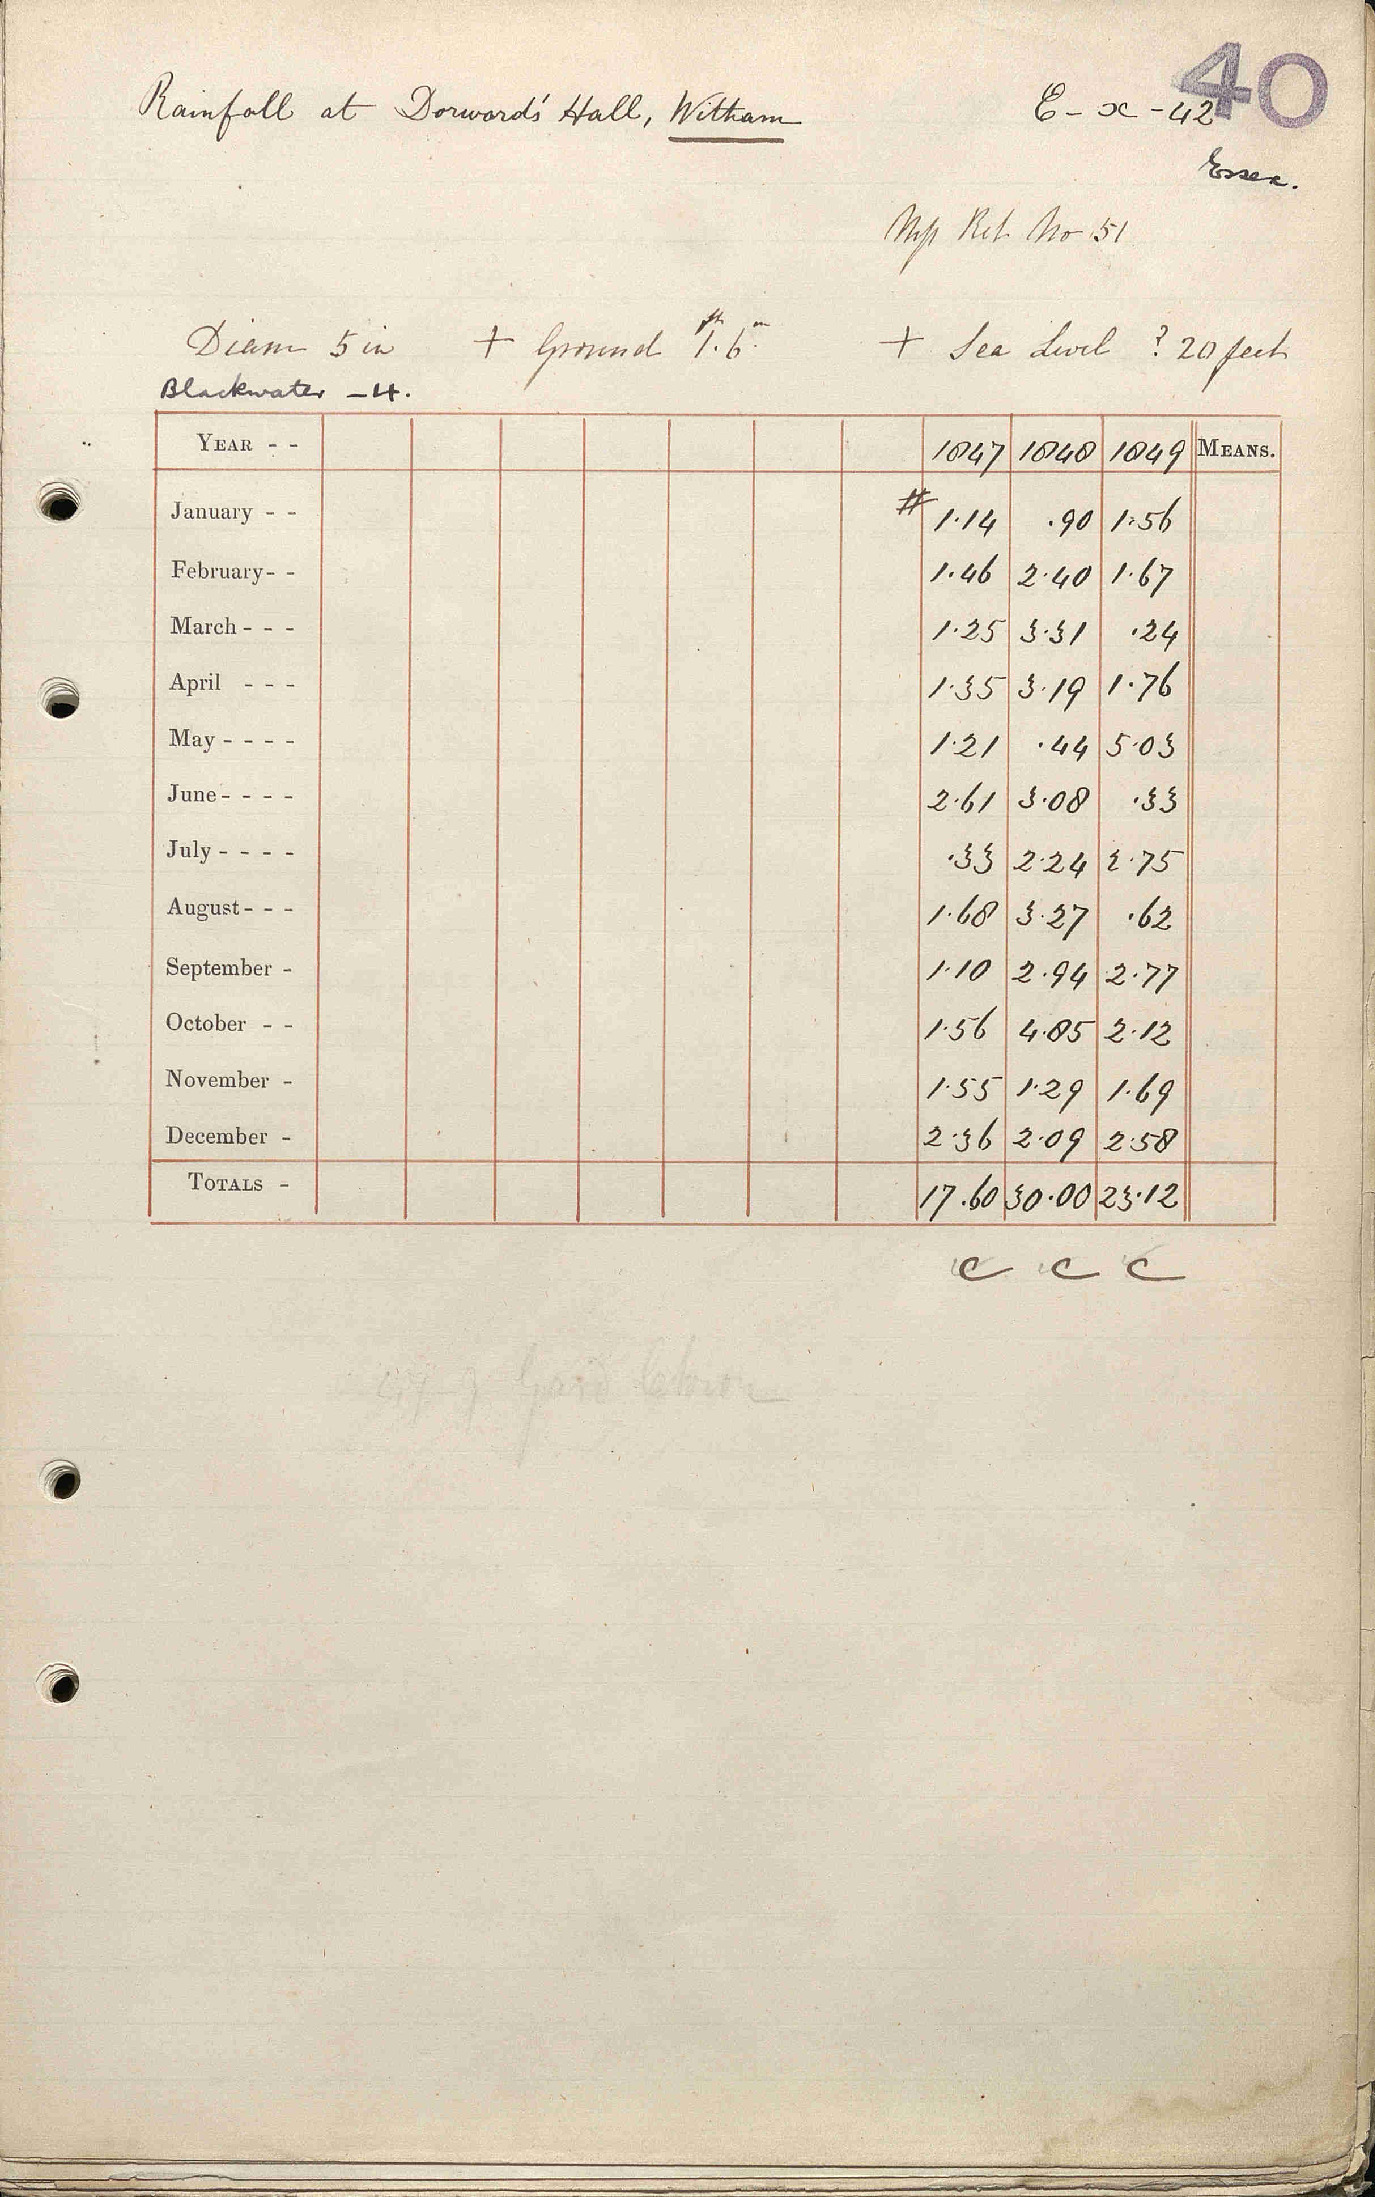 40
Rainfall at Dorward's Hall, Witham E-x-42
Essex.
Mss Ret No 51
Diam 5 in + Ground 1ft. 6in. + Sea Level ? 20 feet
Blackwater -4.
YEAR - - 1847 1848 1849 MEANS.
January - - # 1.14 .90 1.56
February- - 1.46 2.40 1.67
March - - - 1.25 3.31 .24
April - - - 1.35 3.19 1.76
May - - - - 1.21 .44 5.03
June - - - - 2.61 3.08 .33
July - - - - .33 2.24 2.75
August - - - 1.68 3.27 .62
September - 1.10 2.94 2.77
October - - 1.56 4.85 2.12
November - 1.55 1.29 1.69
December - 2.36 2.09 2.58
TOTALS - 17.60 30.00 23.12
C C C